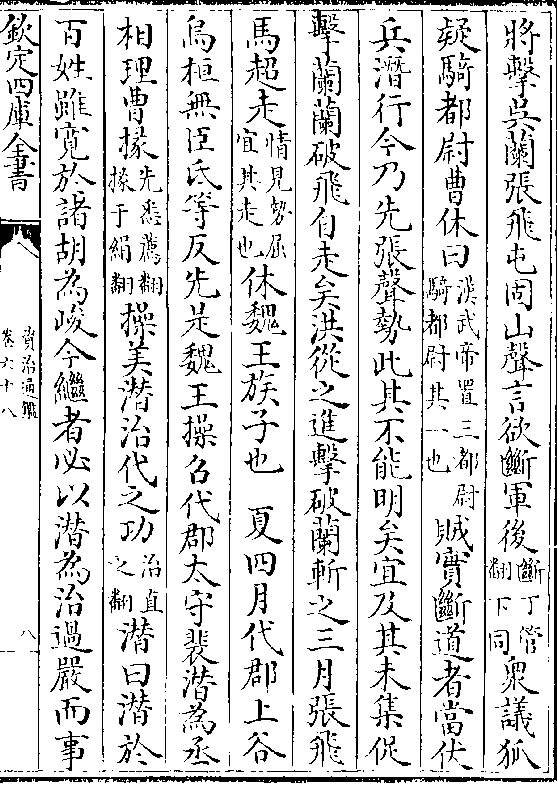 將擊吳蘭張飛屯固山聲言欲斷軍後斷丁管翻下同衆議狐
疑騎都尉曹休曰漢武帝置三都尉騎都尉其一也賊實斷道者當伏
兵潛行今乃先張聲勢此其不能明矣宜及其未集促
擊蘭蘭破飛自走矣洪從之進擊破蘭斬之三月張飛
馬超走情見勢屈宜其走也休魏王族子也　夏四月代郡上谷
烏桓無臣氐等反先是魏王操召代郡太守裴潛為丞
相理曹掾先悉薦翻掾于絹翻操美潛治代之功治直之翻潛曰潛於
百姓雖寛於諸胡為峻今繼者必以潛為治過嚴而事
欽定四庫全書
資治通鑑
卷六十八
八